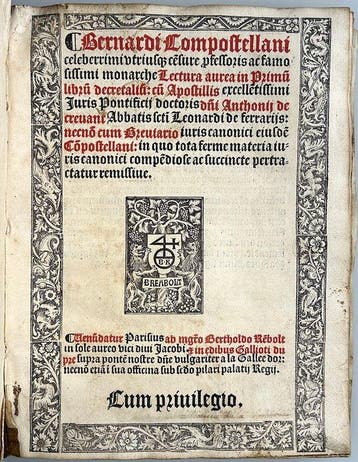 Bernardi Compostellani
celeberrimi vtriusq; cēsure ꝓfessoris ac famo
sissimi monarche Lectura aurea in Primū
librū decretaliū: cū Apostillis excellētissimi
Juris Pontificij doctoris dn̄i Anthonij de
creuant Abbatis scti Leonardi de ferrarijs:
necnō cum Breuiario iuris canonici eiusdē
Cōpostellani: in quo tota ferme materia iu-
ris canonici compēdiose ac succincte pertra-
ctatur remissiue.
B R
BREABOLT
Uenūdatur Parisius ab mgr̄o Bertholdo Rēbolt
in sole aureo vici diui Jacobi. ⁊ in edibus Gallioti du
pre supra pontē nostre dn̄e vulgariter a la Gallee dor:
necnō etiā ī sua officina sub scdo pilari palatij Regij.
Cum priuilegio.